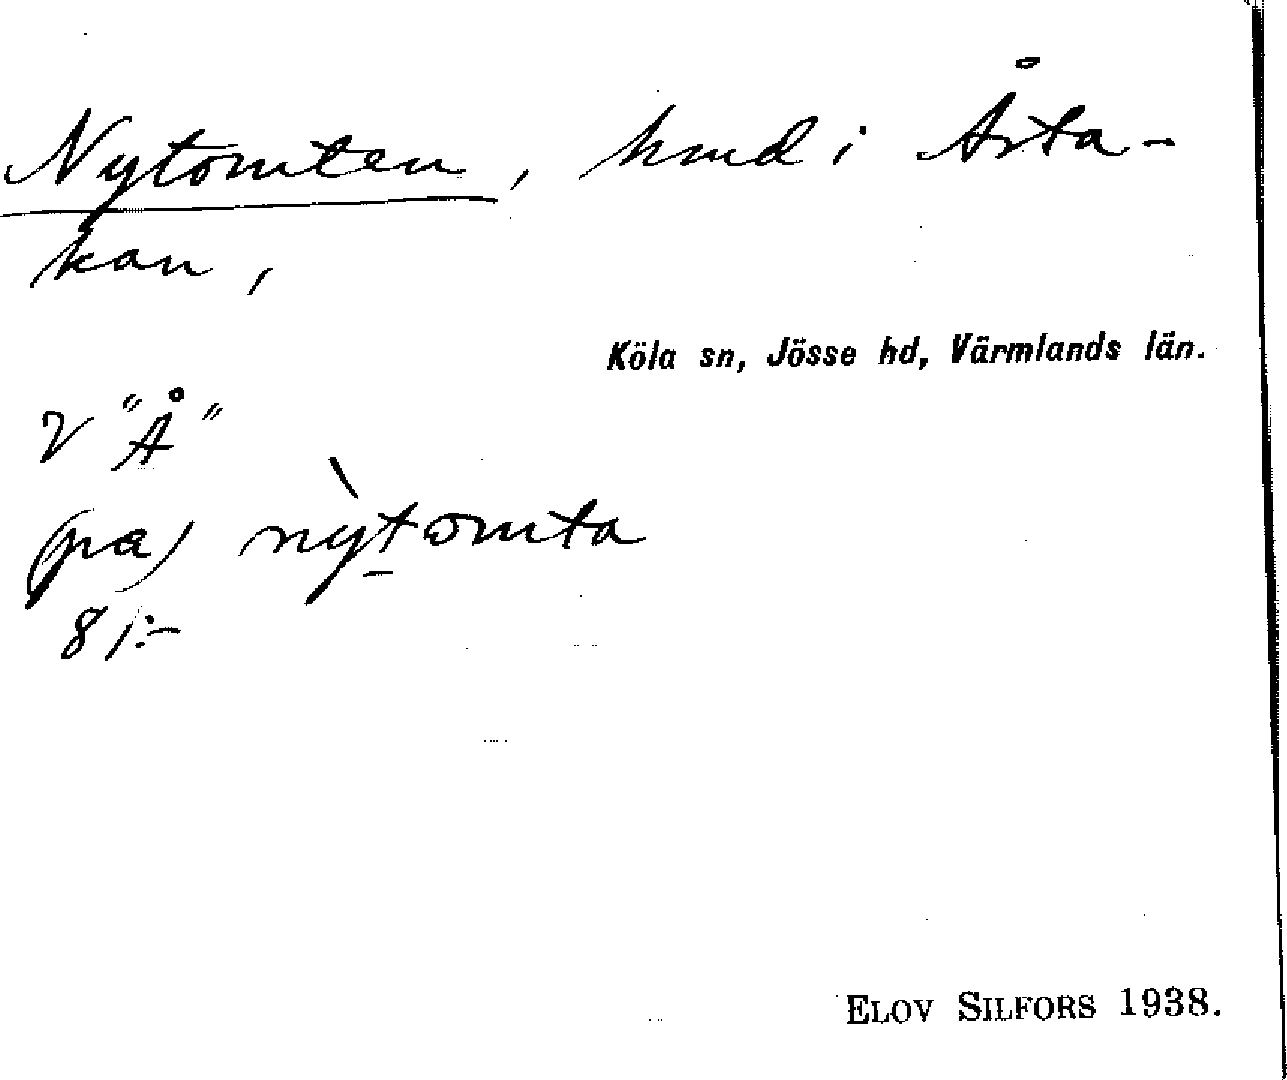 Nytomten, hmd i Årta-
kan,
Köla sn, Jösse hd, Värmlands län.
V "Å"
(pa) nỳtomta
81:-
ELOV SILFORS 1938.